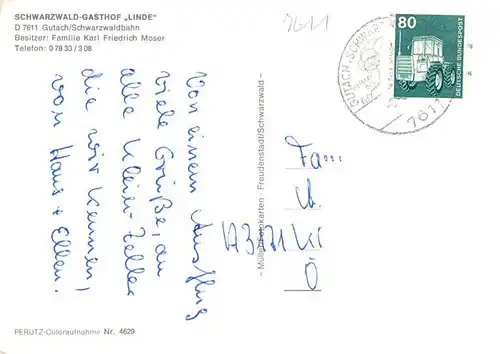 SCHWARZWALD-GASTHOF „LINDE"
D 7611 Gutach/Schwarzwaldbahn
Besitzer: Familie Karl Friedrich Moser
Telefon: 0 78 33 / 3 08
7611
80
DEUTSCHE BUNDESPOST
GUTACH, SCHWARZW
7611
Von einem Ausflug
viele Grüße, an
alle Kleier-Zeller
die wir kennen!
von Hans + Ellen.
– Müller Fotokarten · Freudenstadt/Schwarzwald –
Fam
A3171 Kl
Ö
PERUTZ-Coloraufnahme Nr. 4629